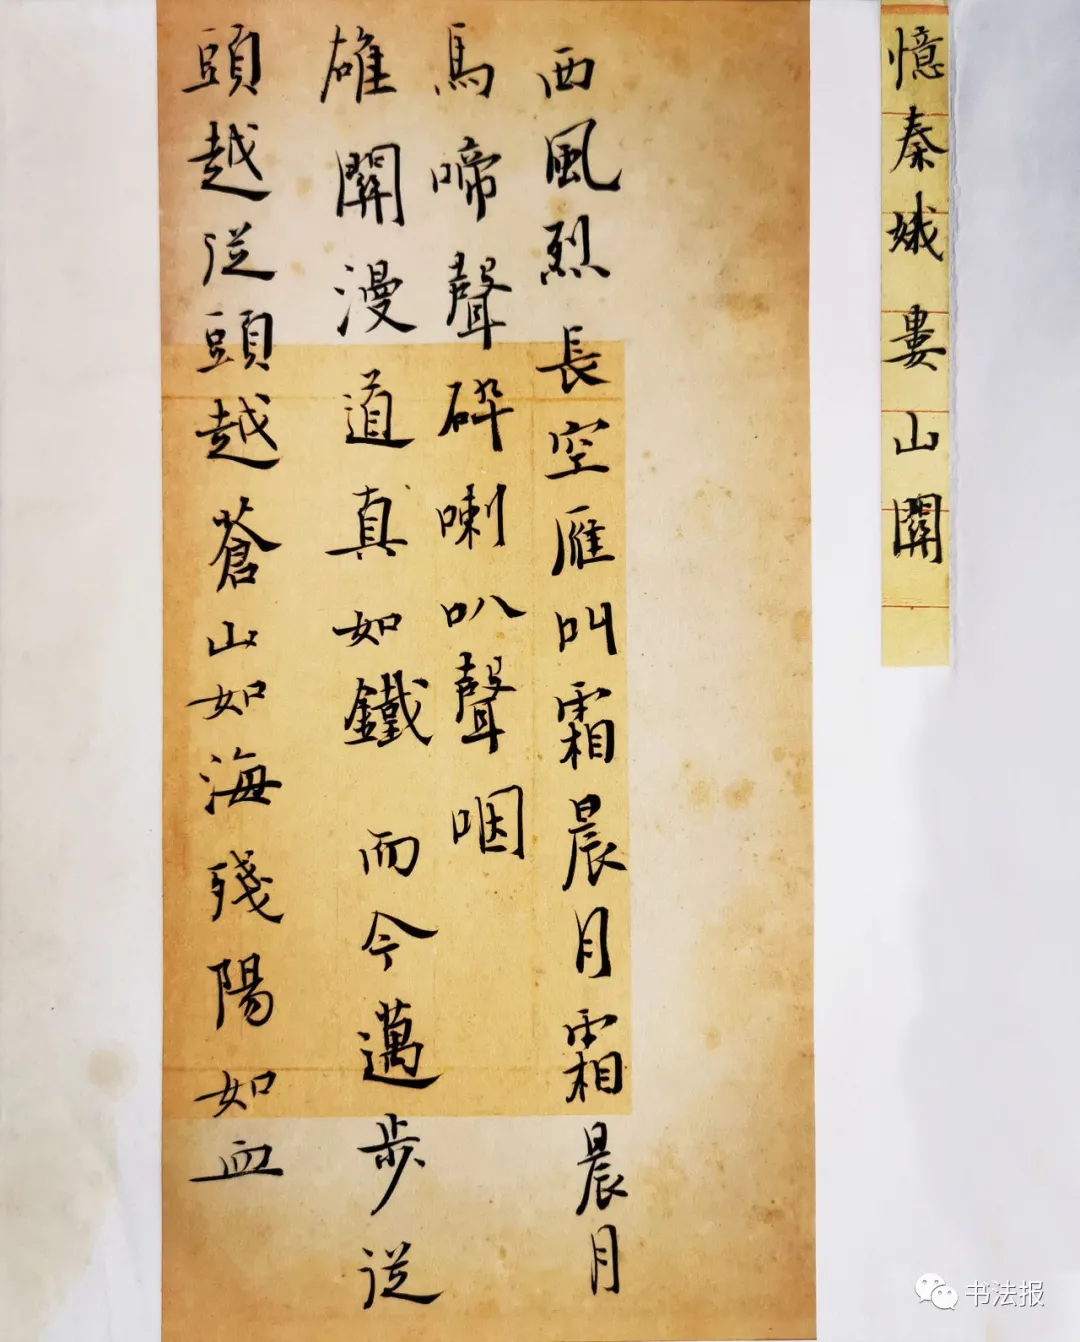 憶秦娥 婁山關
西風烈 長空雁叫霜晨月霜晨月
馬啼聲碎喇叭聲咽
雄關漫道真如鐵 而今邁步從
頭越從頭越蒼山如海殘陽如血
书法报